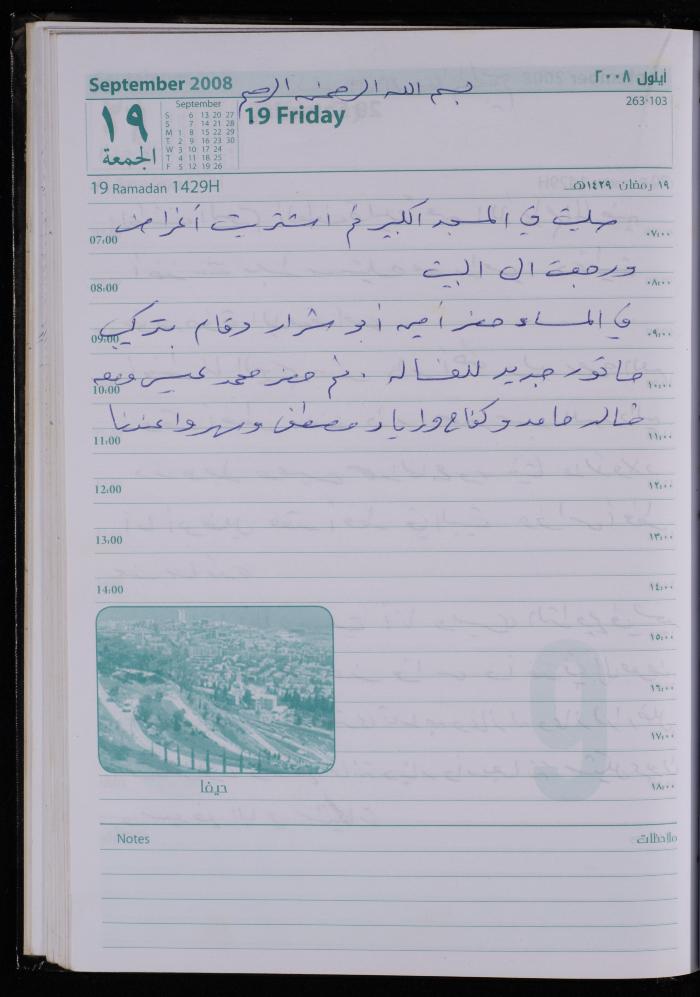 September 2008
أيلول ٢٠٠٨
بسم الله الرحمن الرحيم
١٩
الجمعة
September
S 6 13 20 27
S 7 14 21 28
M 1 8 15 22 29
T 2 9 16 23 30
W 3 10 17 24
T 4 11 18 25
F 5 12 19 26
19 Friday
263-103
19 Ramadan 1429H
١٩ رمضان ١٤٢٩هـ
صليت في المسجد الكبير ثم اشتريت أغراض
07:00
٠٧:٠٠
ورجعت الى البيت
08:00
٠٨:٠٠
في المساء حضر أمين أبو شرار وقام بتركيب
09:00
٠٩:٠٠
ماتور جديد للغسالة . ثم حضر محمد عيسى ومعه
10:00
١٠:٠٠
خالد حامد وكفاح واياد مصطفى وسهروا عندنا
11:00
١١:٠٠
12:00
١٢:٠٠
13:00
١٣:٠٠
14:00
١٤:٠٠
١٥:٠٠
١٦:٠٠
١٧:٠٠
١٨:٠٠
حيفا
Notes
ملاحظات
9